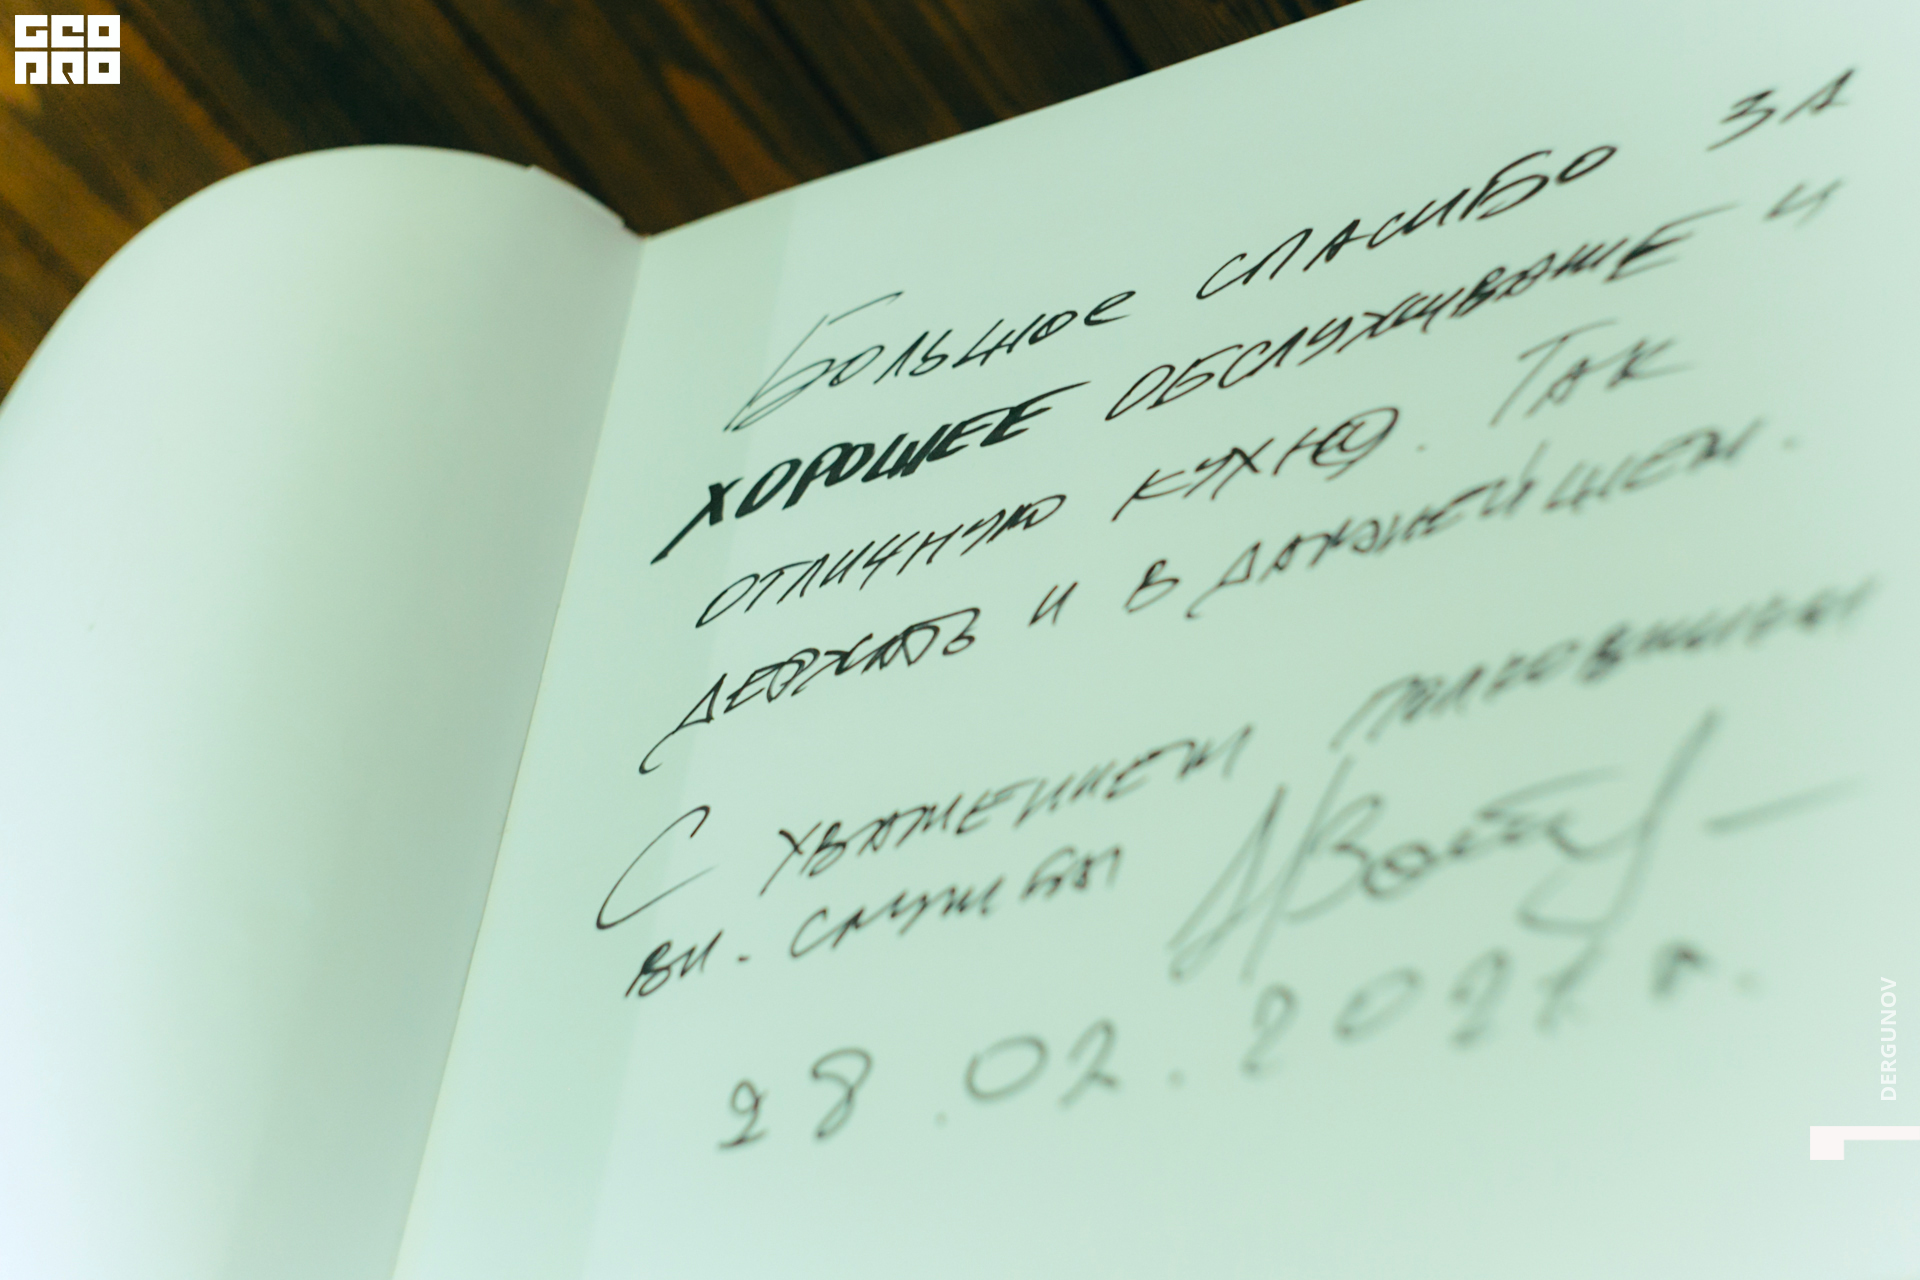 GEO
PRO
Большое спасибо за
хорошее обслуживание и
отличную кухню. Так
держать и в дальнейшем.
С уважением полковник
вн. службы
28.02.2021 г.
DERGUNOV